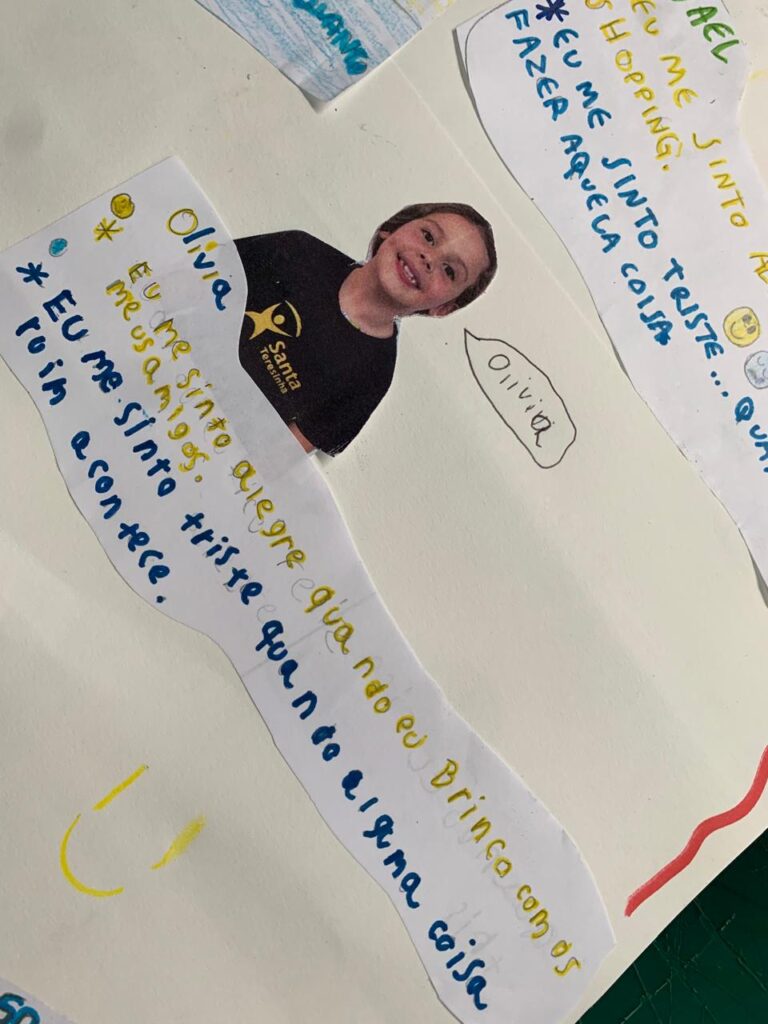 ELLANCO
AEL
EU ME SINTO
SHOPPING.
* EU ME SINTO TRISTE... QUA
FAZER AQUELA COISA
Olivia
* EU me sinto alegre quando eu Brinco com os
meus amigos.
* EU me sinto triste quando alguma coisa
ruim acontece.
Santa
Teresinha
Olivia